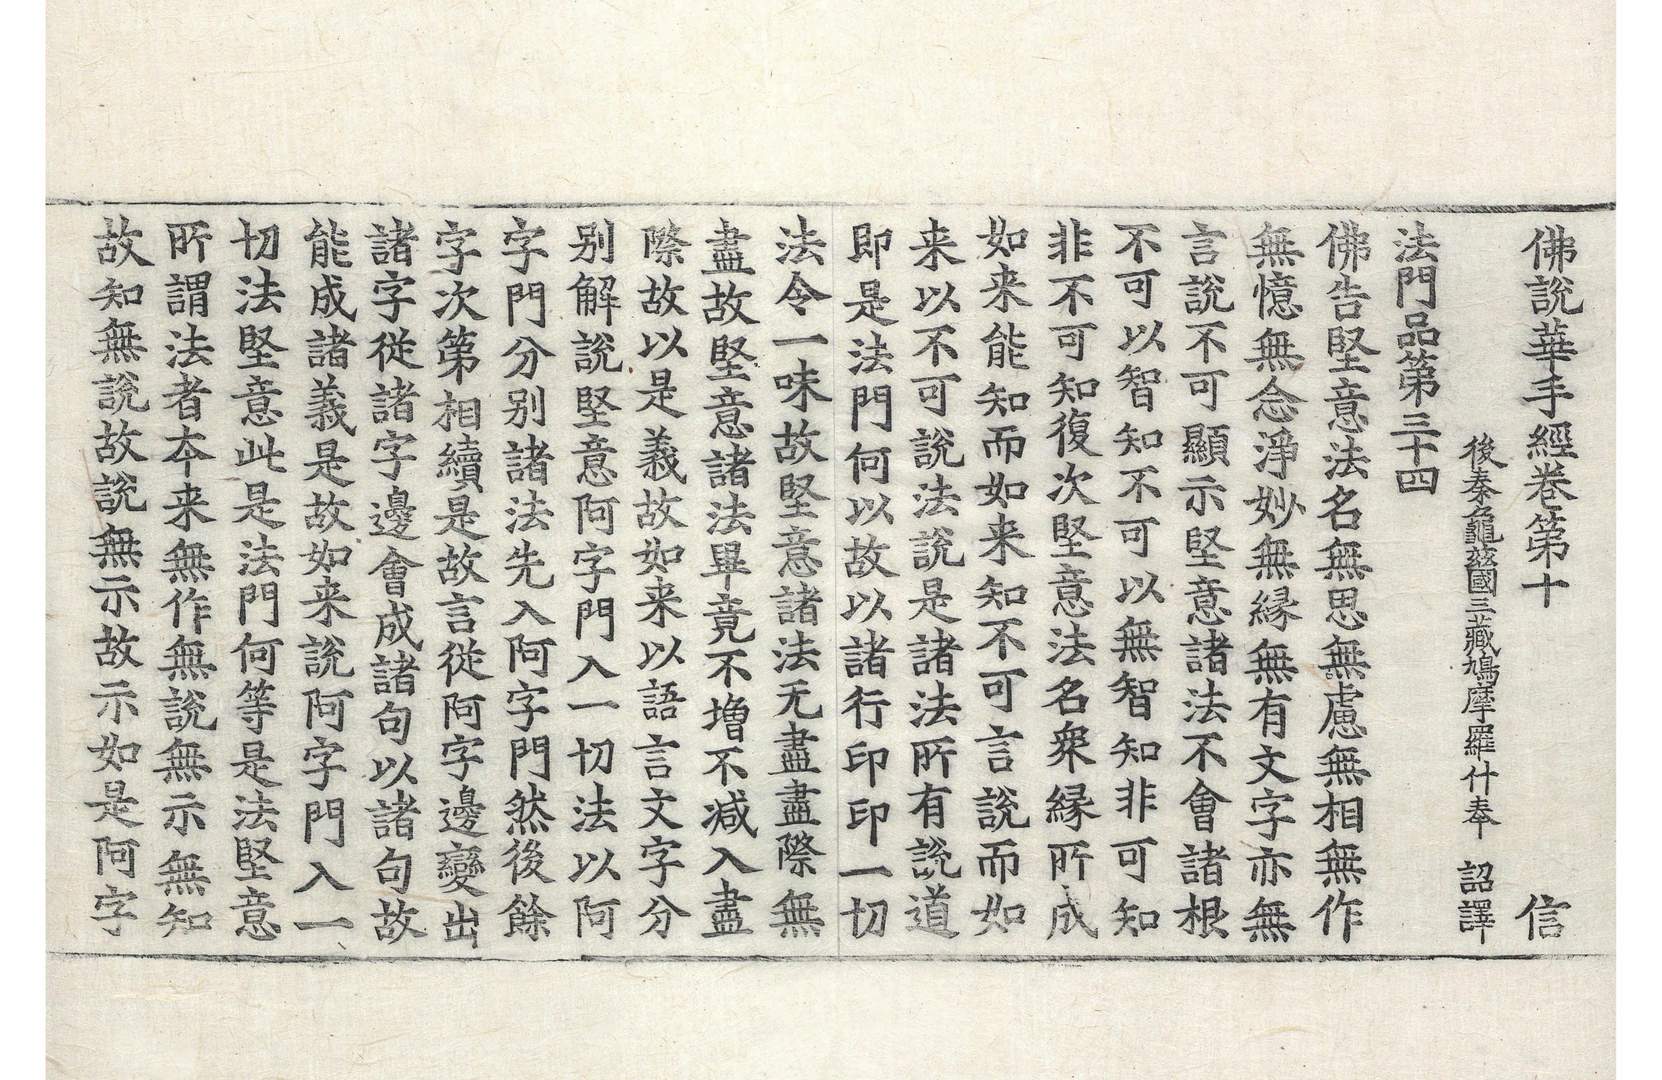 佛說華手經卷第十　信
後秦龜茲國三藏鳩摩羅什奉　詔譯
法門品第三十四
佛告堅意法名無思無慮無相無作
無憶無念淨妙無緣無有文字亦無
言說不可顯示堅意諸法不會諸根
不可以智知不可以無智知非可知
非不可知復次堅意法名衆緣所成
如来能知而如来知不可言說而如
来以不可說法說是諸法所有說道
即是法門何以故以諸行印印一切
法令一味故堅意諸法无盡盡際無
盡故堅意諸法畢竟不增不減入盡
際故以是義故如来以語言文字分
别解說堅意阿字門入一切法以阿
字門分别諸法先入阿字門然後餘
字次第相續是故言從阿字邊變出
諸字從諸字邊會成諸句以諸句故
能成諸義是故如来說阿字門入一
切法堅意此是法門何等是法堅意
所謂法者夲来無作無說無示無知
故知無說故說無示故示如是阿字